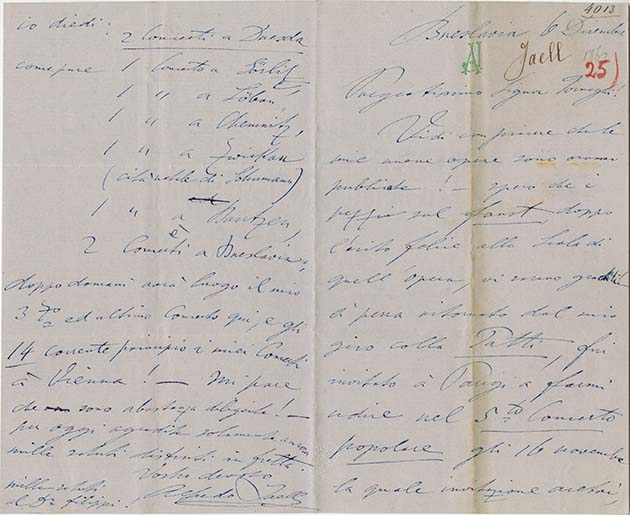 4013
Breslavia 6 Dicembre
1862
Jaell
25)
Pregiatissimo Signor
Vidi con piacere che le
mie nuove opere sono oramai
publicate! — spero che i
pezzi sul Faust, doppo
l'esito felice alla Scala di
quell' opera, vi saranno
à pena ritornato dal mio
giro colla Patti, fui
invitato à Parigi a farmi
udire nel 5to Concerto
popolare gli 16 novembre
la quale invitazione
io diedi:
2 Concerti a Dresda
come pure 1 Concerto a Görlitz
1 " a Löbau,
1 " a Chemnitz,
1 " a Zwickau
(città natale di Schumann)
1 " a Bautzen,
è
2 Concerti a Breslavia,
doppo domani avrà luogo il mio
3zo ed ultimo Concerto qui, e gli
14 corrente principio i miei Concerti
à Vienna! — Mi pare
che sono abastanza diligente! —
per oggi agradite solamente ancora
mille saluti distinti in fretta
Vostro devoto
Alfredo Jaell
mille saluti
al Dr Filippi!